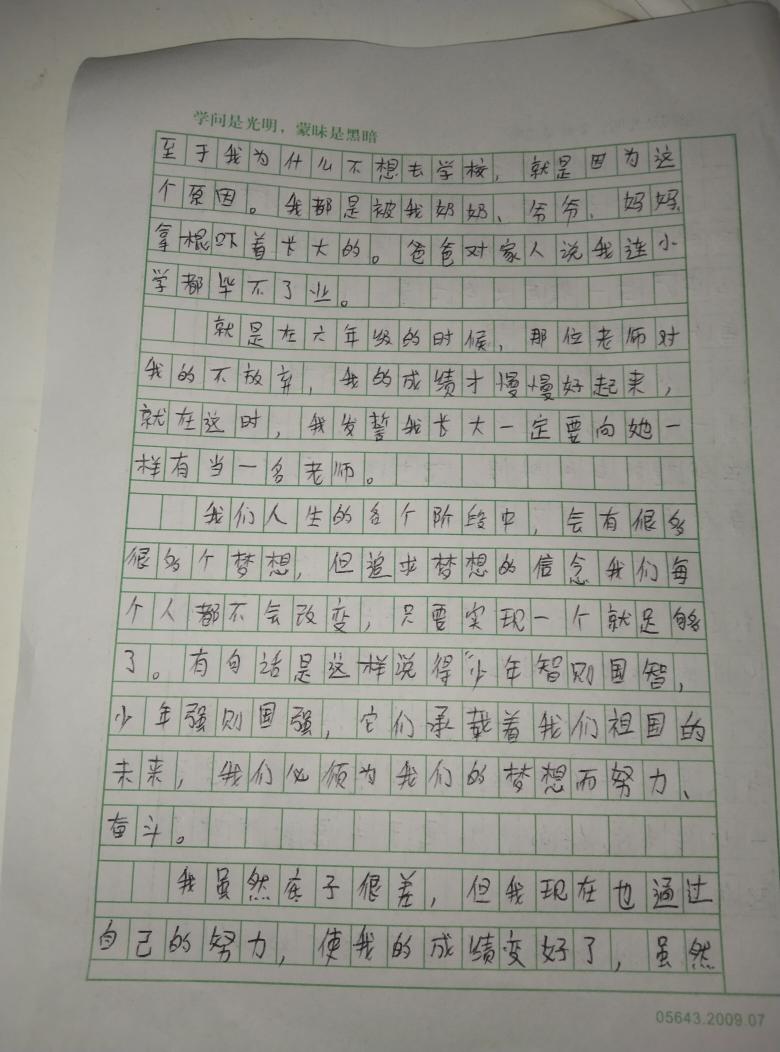 学问是光明，蒙昧是黑暗
至于我为什么不想去学校，就是因为这
个原因。我都是被我奶奶、爷爷、妈妈
拿棍吓着长大的。爸爸对家人说我连小
学都毕不了业。
就是在六年级的时候，那位老师对
我的不放弃，我的成绩才慢慢好起来，
就在这时，我发誓我长大一定要向她一
样有当一名老师。
我们人生的各个阶段中，会有很多
很多个梦想，但追求梦想的信念我们每
个人都不会改变，只要实现一个就足够
了。有句话是这样说得“少年智则国智，
少年强则国强，它们承载着我们祖国的
未来，我们必须为我们的梦想而努力、
奋斗。
我虽然底子很差，但我现在也通过
自己的努力，使我的成绩变好了，虽然
05643.2009.07